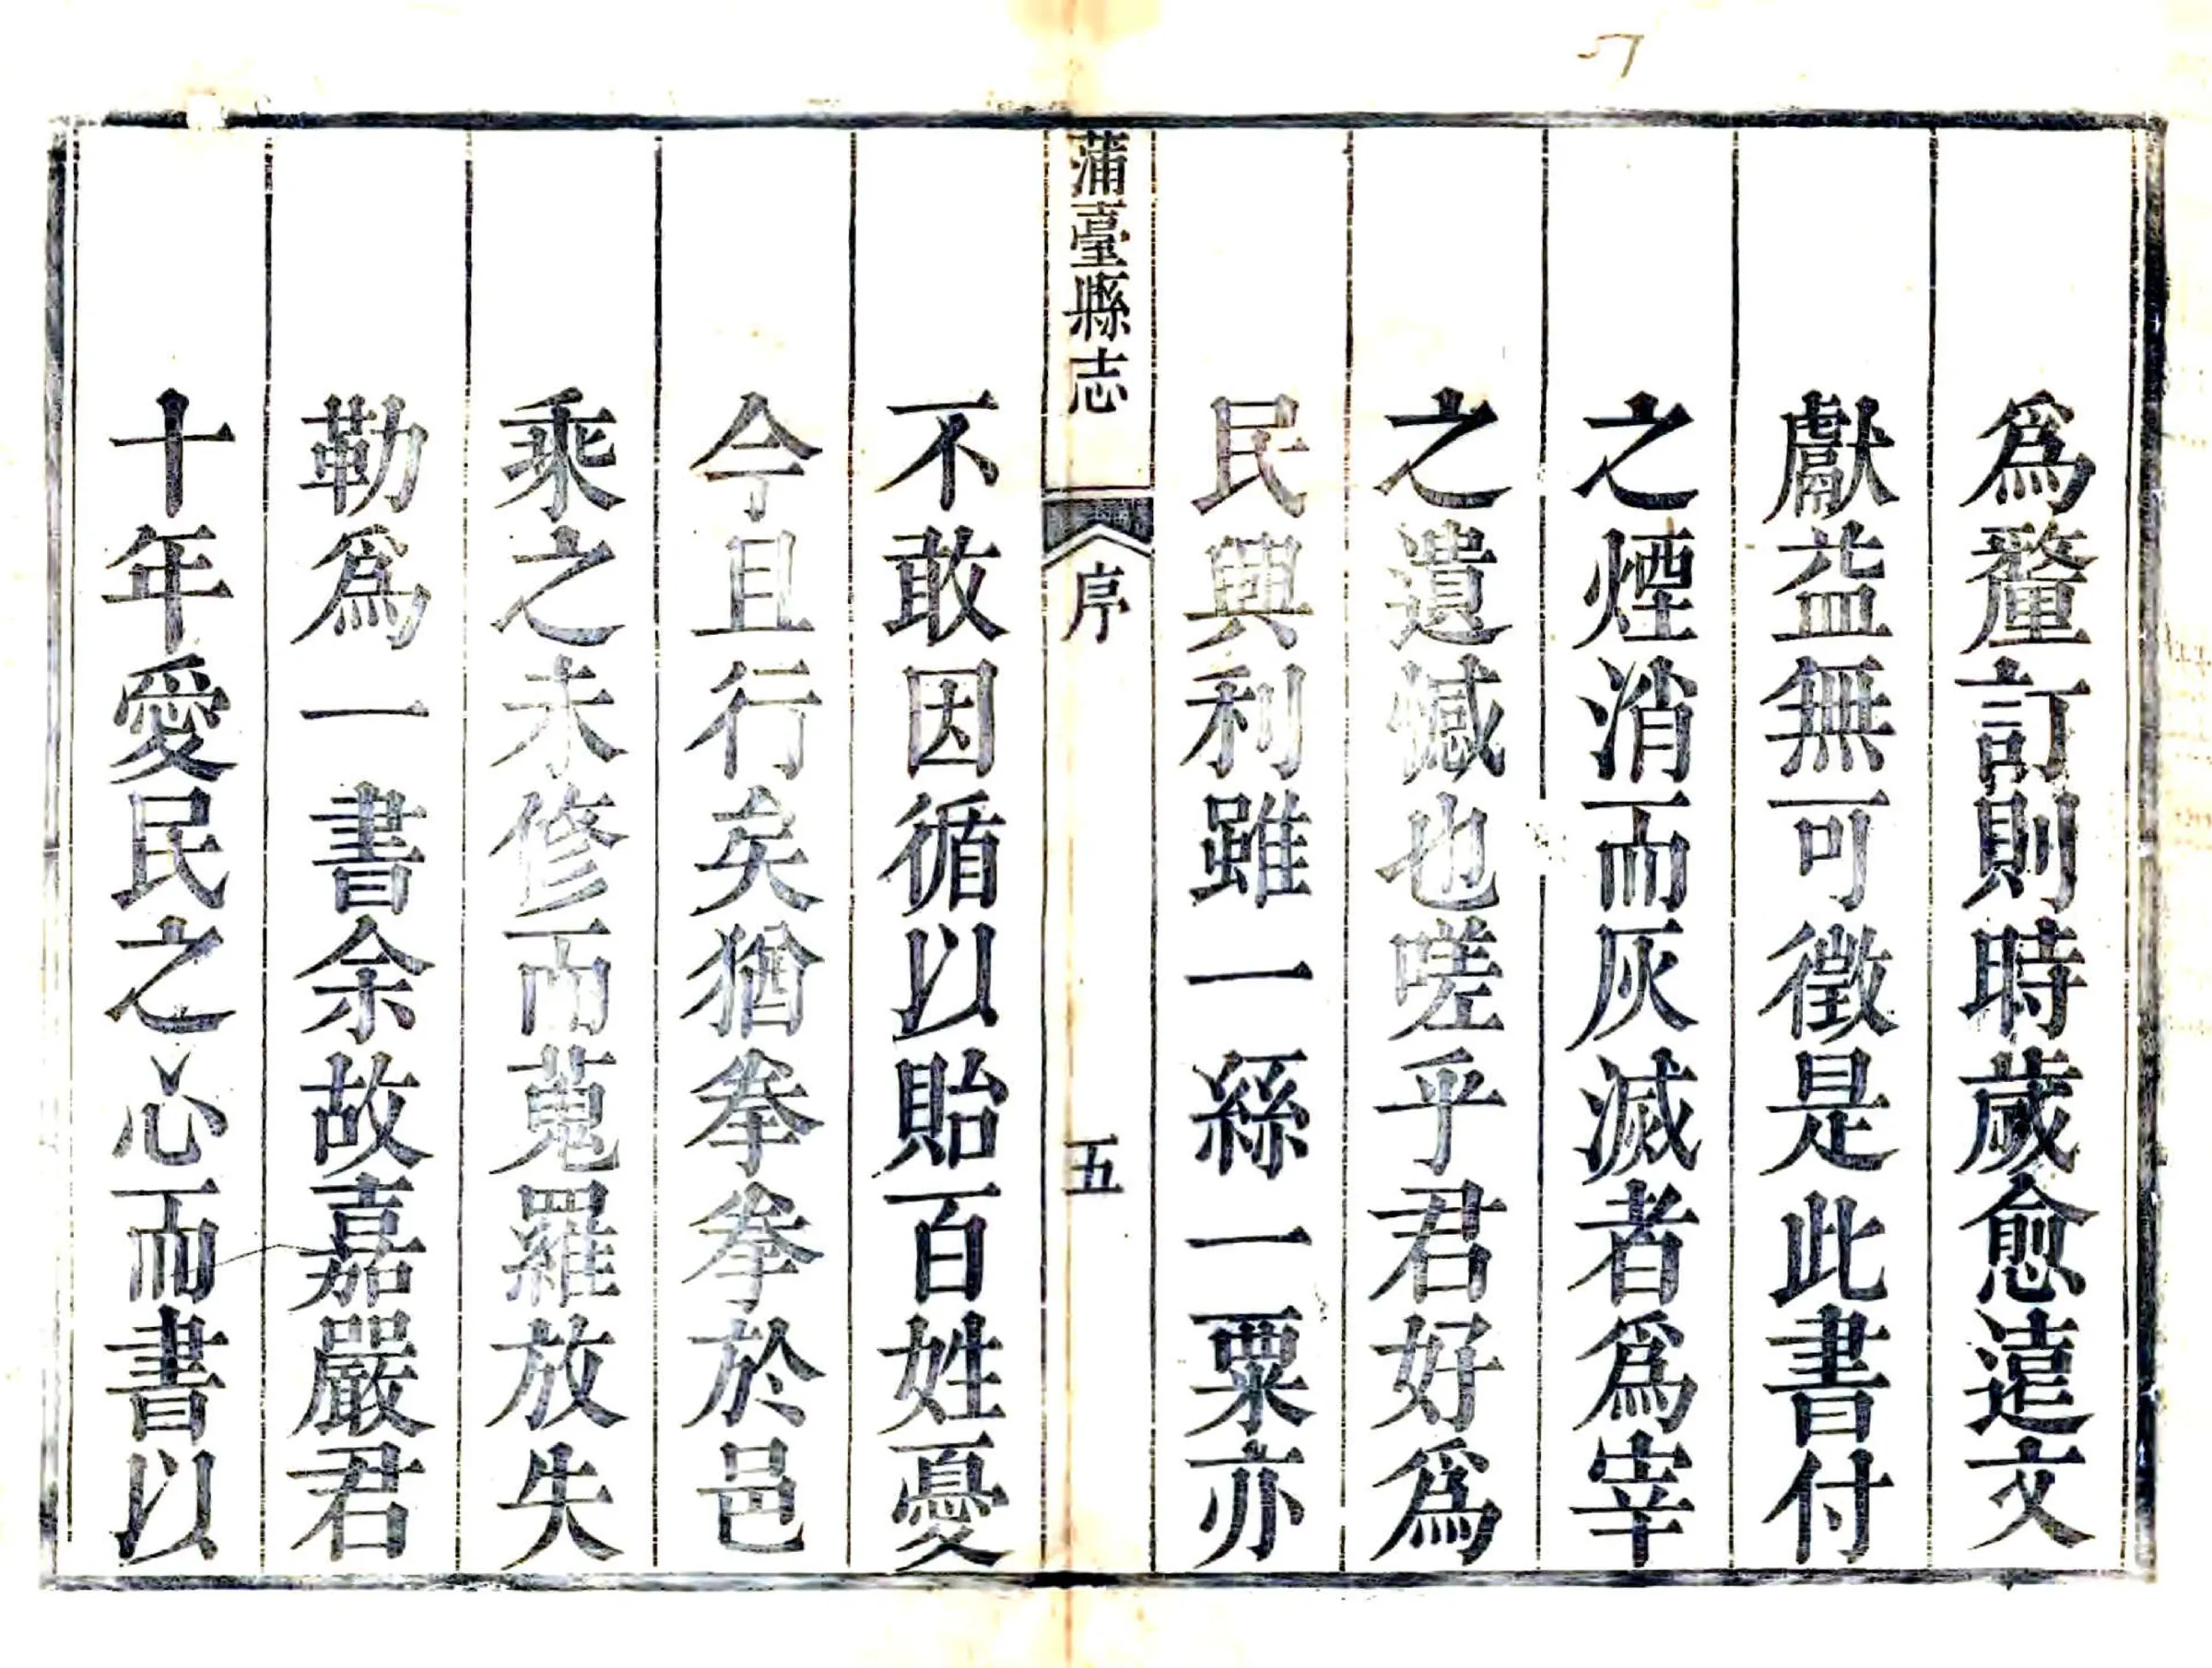 爲釐訂則時歲愈遠文
獻益無可徵是此書付
之煙消而灰滅者爲宰
之遺憾也嗟乎君好爲
民興利雖一絲一粟亦
蒲臺縣志
序
五
不敢因循以貽百姓憂
今且行矣猶拳拳於邑
乘之未修而蒐羅放失
勒爲一書余故嘉嚴君
十年愛民之心而書以